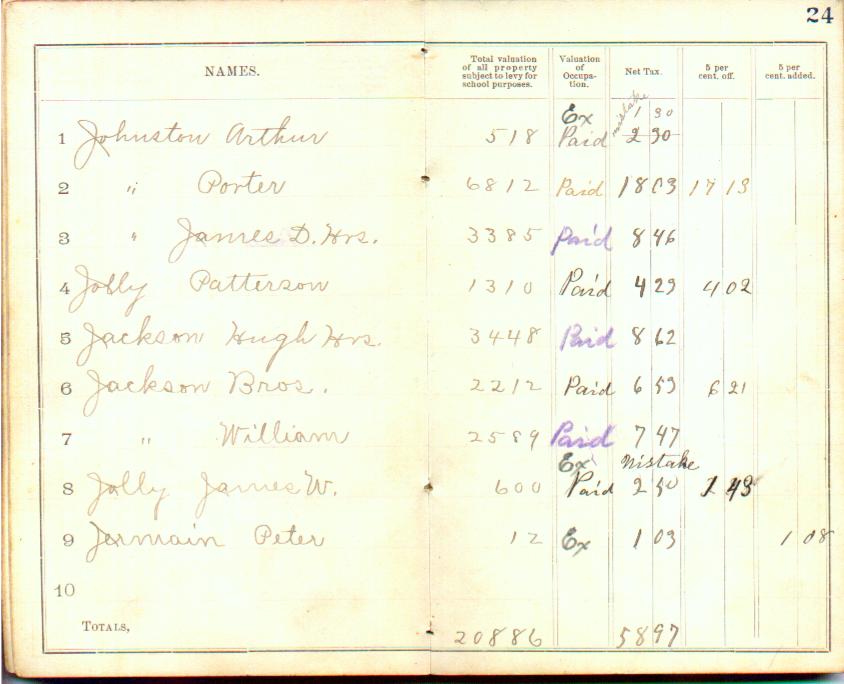 24
NAMES. Total valuation of all property subject to levy for school purposes. Valuation of Occupa- tion. Net Tax. 5 per cent. off. 5 per cent. added.
Ex mistake 1 30
1 Johnston Arthur 518 Paid 2 30
2 " Porter 6812 Paid 18 03 17 13
3 " James D. Hrs. 3385 Paid 8 46
4 Jolly Patterson 1310 Paid 4 23 4 02
5 Jackson Hugh Hrs. 3448 Paid 8 62
6 Jackson Bros. 2212 Paid 6 53 6 21
7 " William 2589 Paid 7 47
Ex Mistake
8 Jolly James W. 600 Paid 2 50 1 43
9 Jermain Peter 12 Ex 1 03 1 08
10
TOTALS, 20886 5897